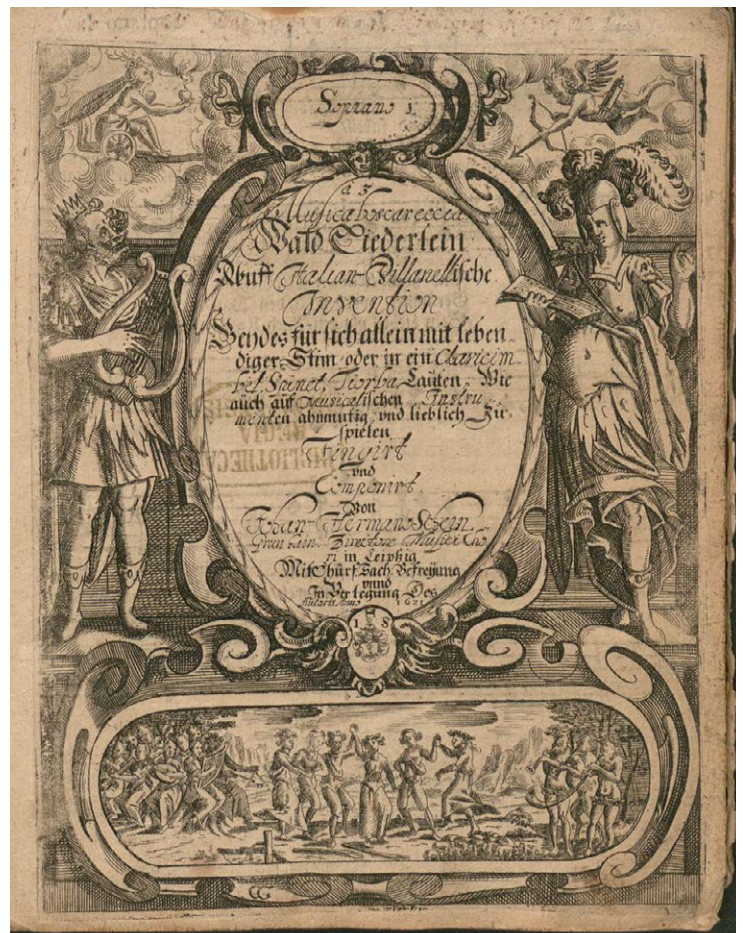 Soprano 1
a 3
Musica boscareccia
Wald Liederlein
Auff Italian-Villanellische
Invention
Beydes für sich allein mit leben-
diger Stim oder in ein Clavicim-
bel, Spinet, Tiorba, Lauten. Wie
auch auf Musicalischen Instru-
menten ahnmutig vnd lieblich Zu
spielen
Fingirt
vnd
Componirt
Von
Johan-Herman Schein
Grünhain Directore Musici Cho
ri in Leipzig
Mit Churf Sach Befreyung
vnnd
In Verlegung Des
Autoris Anno 1621
I S
BIBLIOTHECA
REGIA